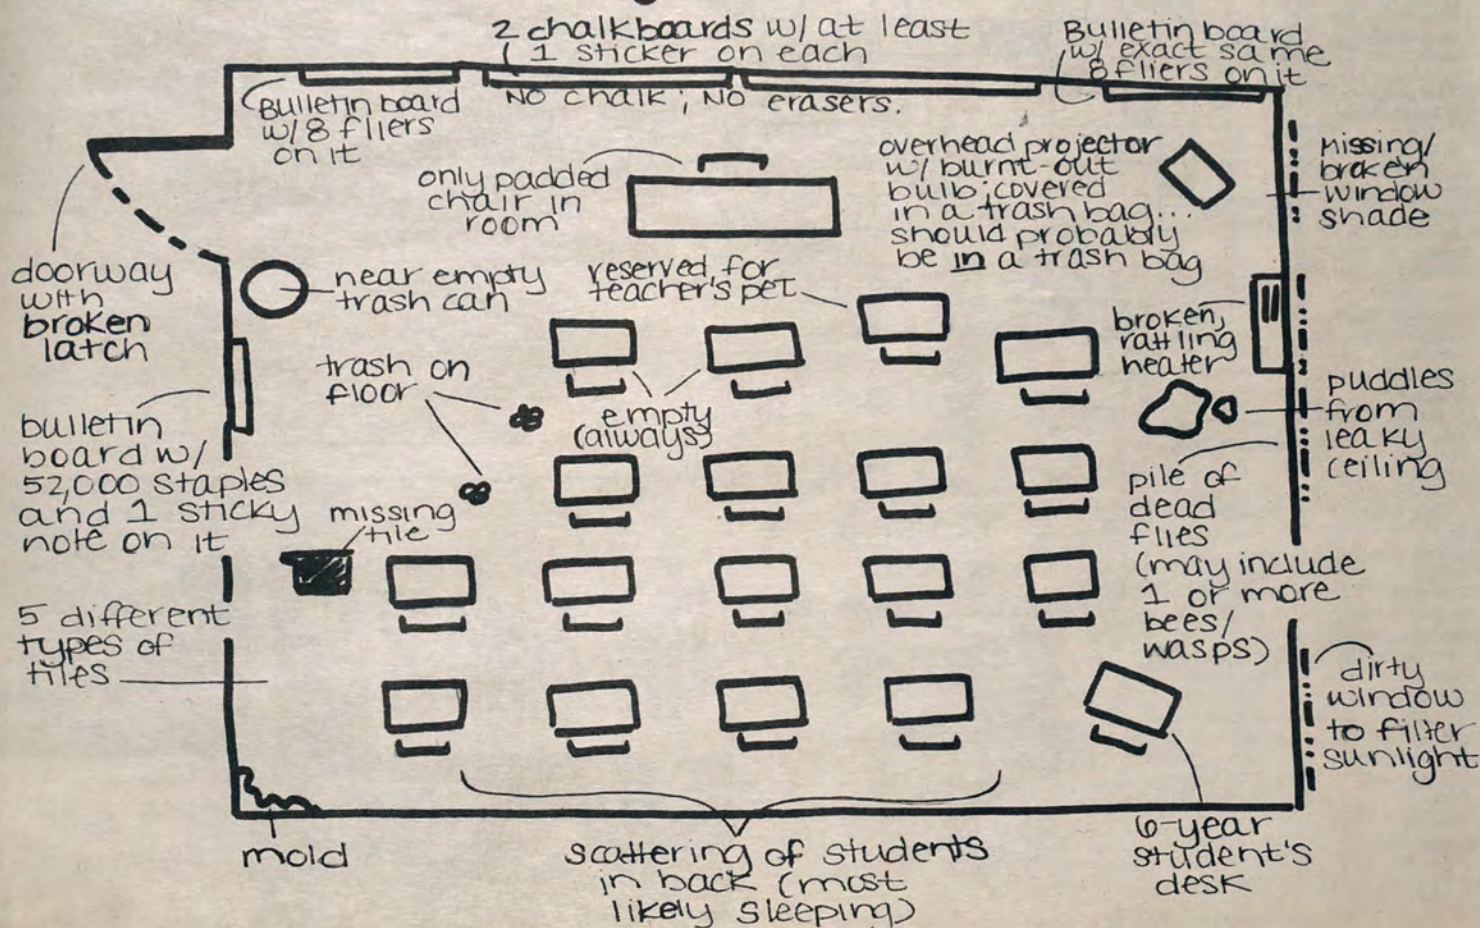 2 chalkboards w/ at least
1 sticker on each
Bulletin board
w/ exact same
8 fliers on it
Bulletin board
w/ 8 fliers
on it
No chalk; No erasers.
only padded
chair in
room
overhead projector
w/ burnt-out
bulb; covered
in a trash bag...
should probably
be in a trash bag
Missing/
broken
window
shade
doorway
with
broken
latch
near empty
trash can
reserved for
teacher's pet
broken,
rattling
heater
trash on
floor
empty
(always)
puddles
from
leaky
ceiling
bulletin
board w/
52,000 staples
and 1 sticky
note on it
missing
tile
pile of
dead
flies
(may include
1 or more
bees/
wasps)
5 different
types of
tiles
dirty
window
to filter
sunlight
mold
scattering of students
in back (most
likely sleeping)
6-year
student's
desk